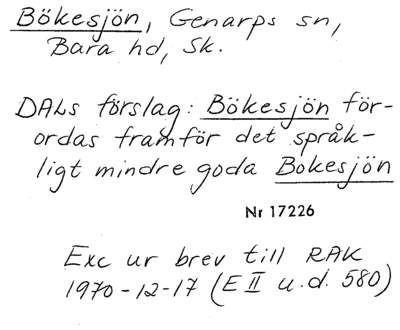 Bökesjön, Genarps sn,
Bara hd, Sk.
DALs förslag: Bökesjön för-
ordas framför det språk-
ligt mindre goda Bokesjön
Nr 17226
Exc ur brev till RAK
1970-12-17 (E II u.d. 580)